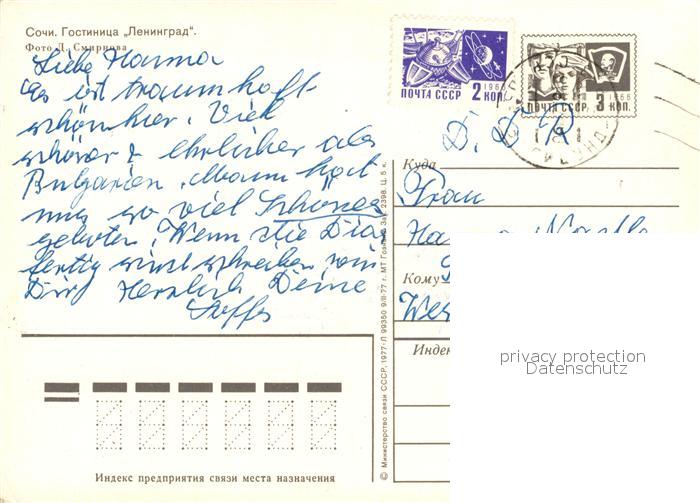 Сочи. Гостиница „Ленинград".
Фото Д. Смирнова
Liebe Hanna
es ist traumhaft
schön hier. Viel
schöner & ehrlicher als
Bulgarien. Mann hat
uns so viel Schönes
geboten. Wenn die Dias
fertig sind schreiben wir
Dir! Herzlich Deine
ПОЧТА СССР 2 КОП.
1966
ПОЧТА СССР 3 КОП.
Куда
Frau
Кому
Индек
Индекс предприятия связи места назначения
© Министерство связи СССР, 1977 г. Л 99350 9/II-77 г. МТ Гознака. Зак. 2398. Ц. 5 к.
privacy protection
Datenschutz